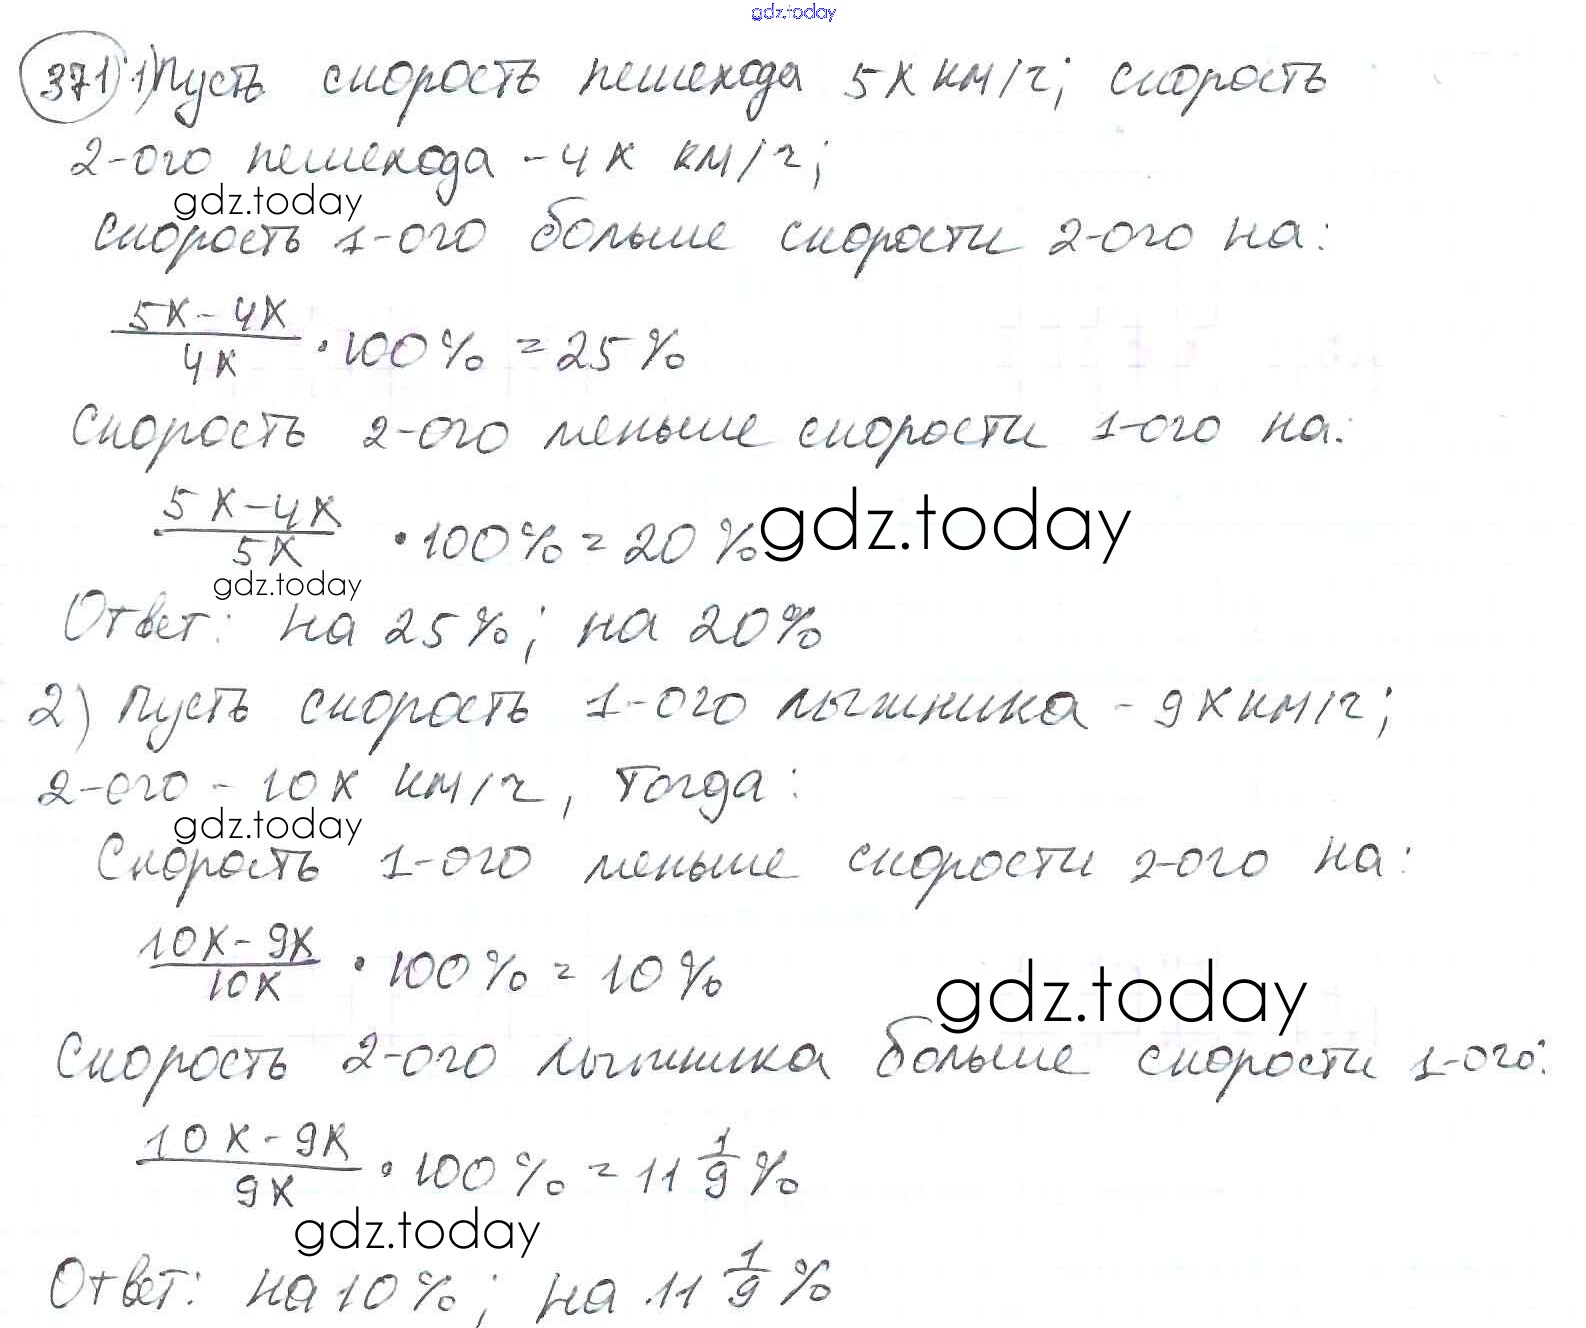 gdz.today
371 1) Пусть скорость пешехода 5х км/ч; скорость
2-ого пешехода - 4х км/ч;
gdz.today
Скорость 1-ого больше скорости 2-ого на:
5х - 4х
4х · 100% = 25%
Скорость 2-ого меньше скорости 1-ого на:
5х - 4х
5х · 100% = 20% gdz.today
gdz.today
Ответ: на 25%; на 20%
2) Пусть скорость 1-ого лыжника - 9х км/ч;
2-ого - 10х км/ч, тогда:
gdz.today
Скорость 1-ого меньше скорости 2-ого на:
10х - 9х
10х · 100% = 10%
gdz.today
Скорость 2-ого лыжника больше скорости 1-ого:
10х - 9х
9х · 100% = 11 1/9 %
gdz.today
Ответ: на 10%; на 11 1/9 %